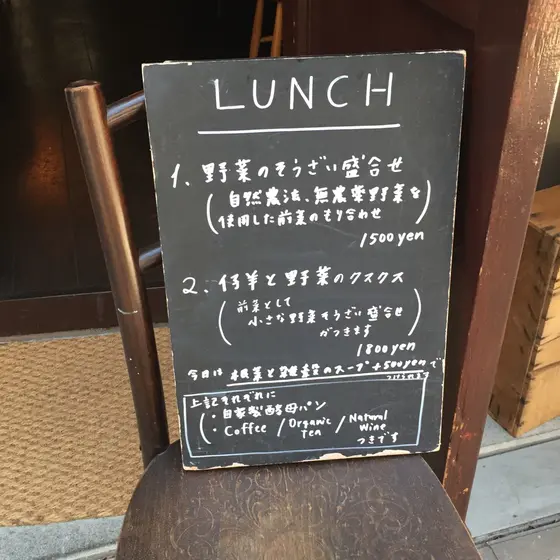 LUNCH
1、野菜のそうざい盛合せ
(自然農法、無農薬野菜を
使用した前菜のもり合わせ)
1500yen
2、仔羊と野菜のクスクス
(前菜として
小さな野菜そうざい盛合せ
がつきます)
1800yen
今日は 根菜と雑穀のスープ +500yenで
つけられます
上記それぞれに
・自家製酵母パン
・Coffee / Organic Tea / Natural Wine
つきです